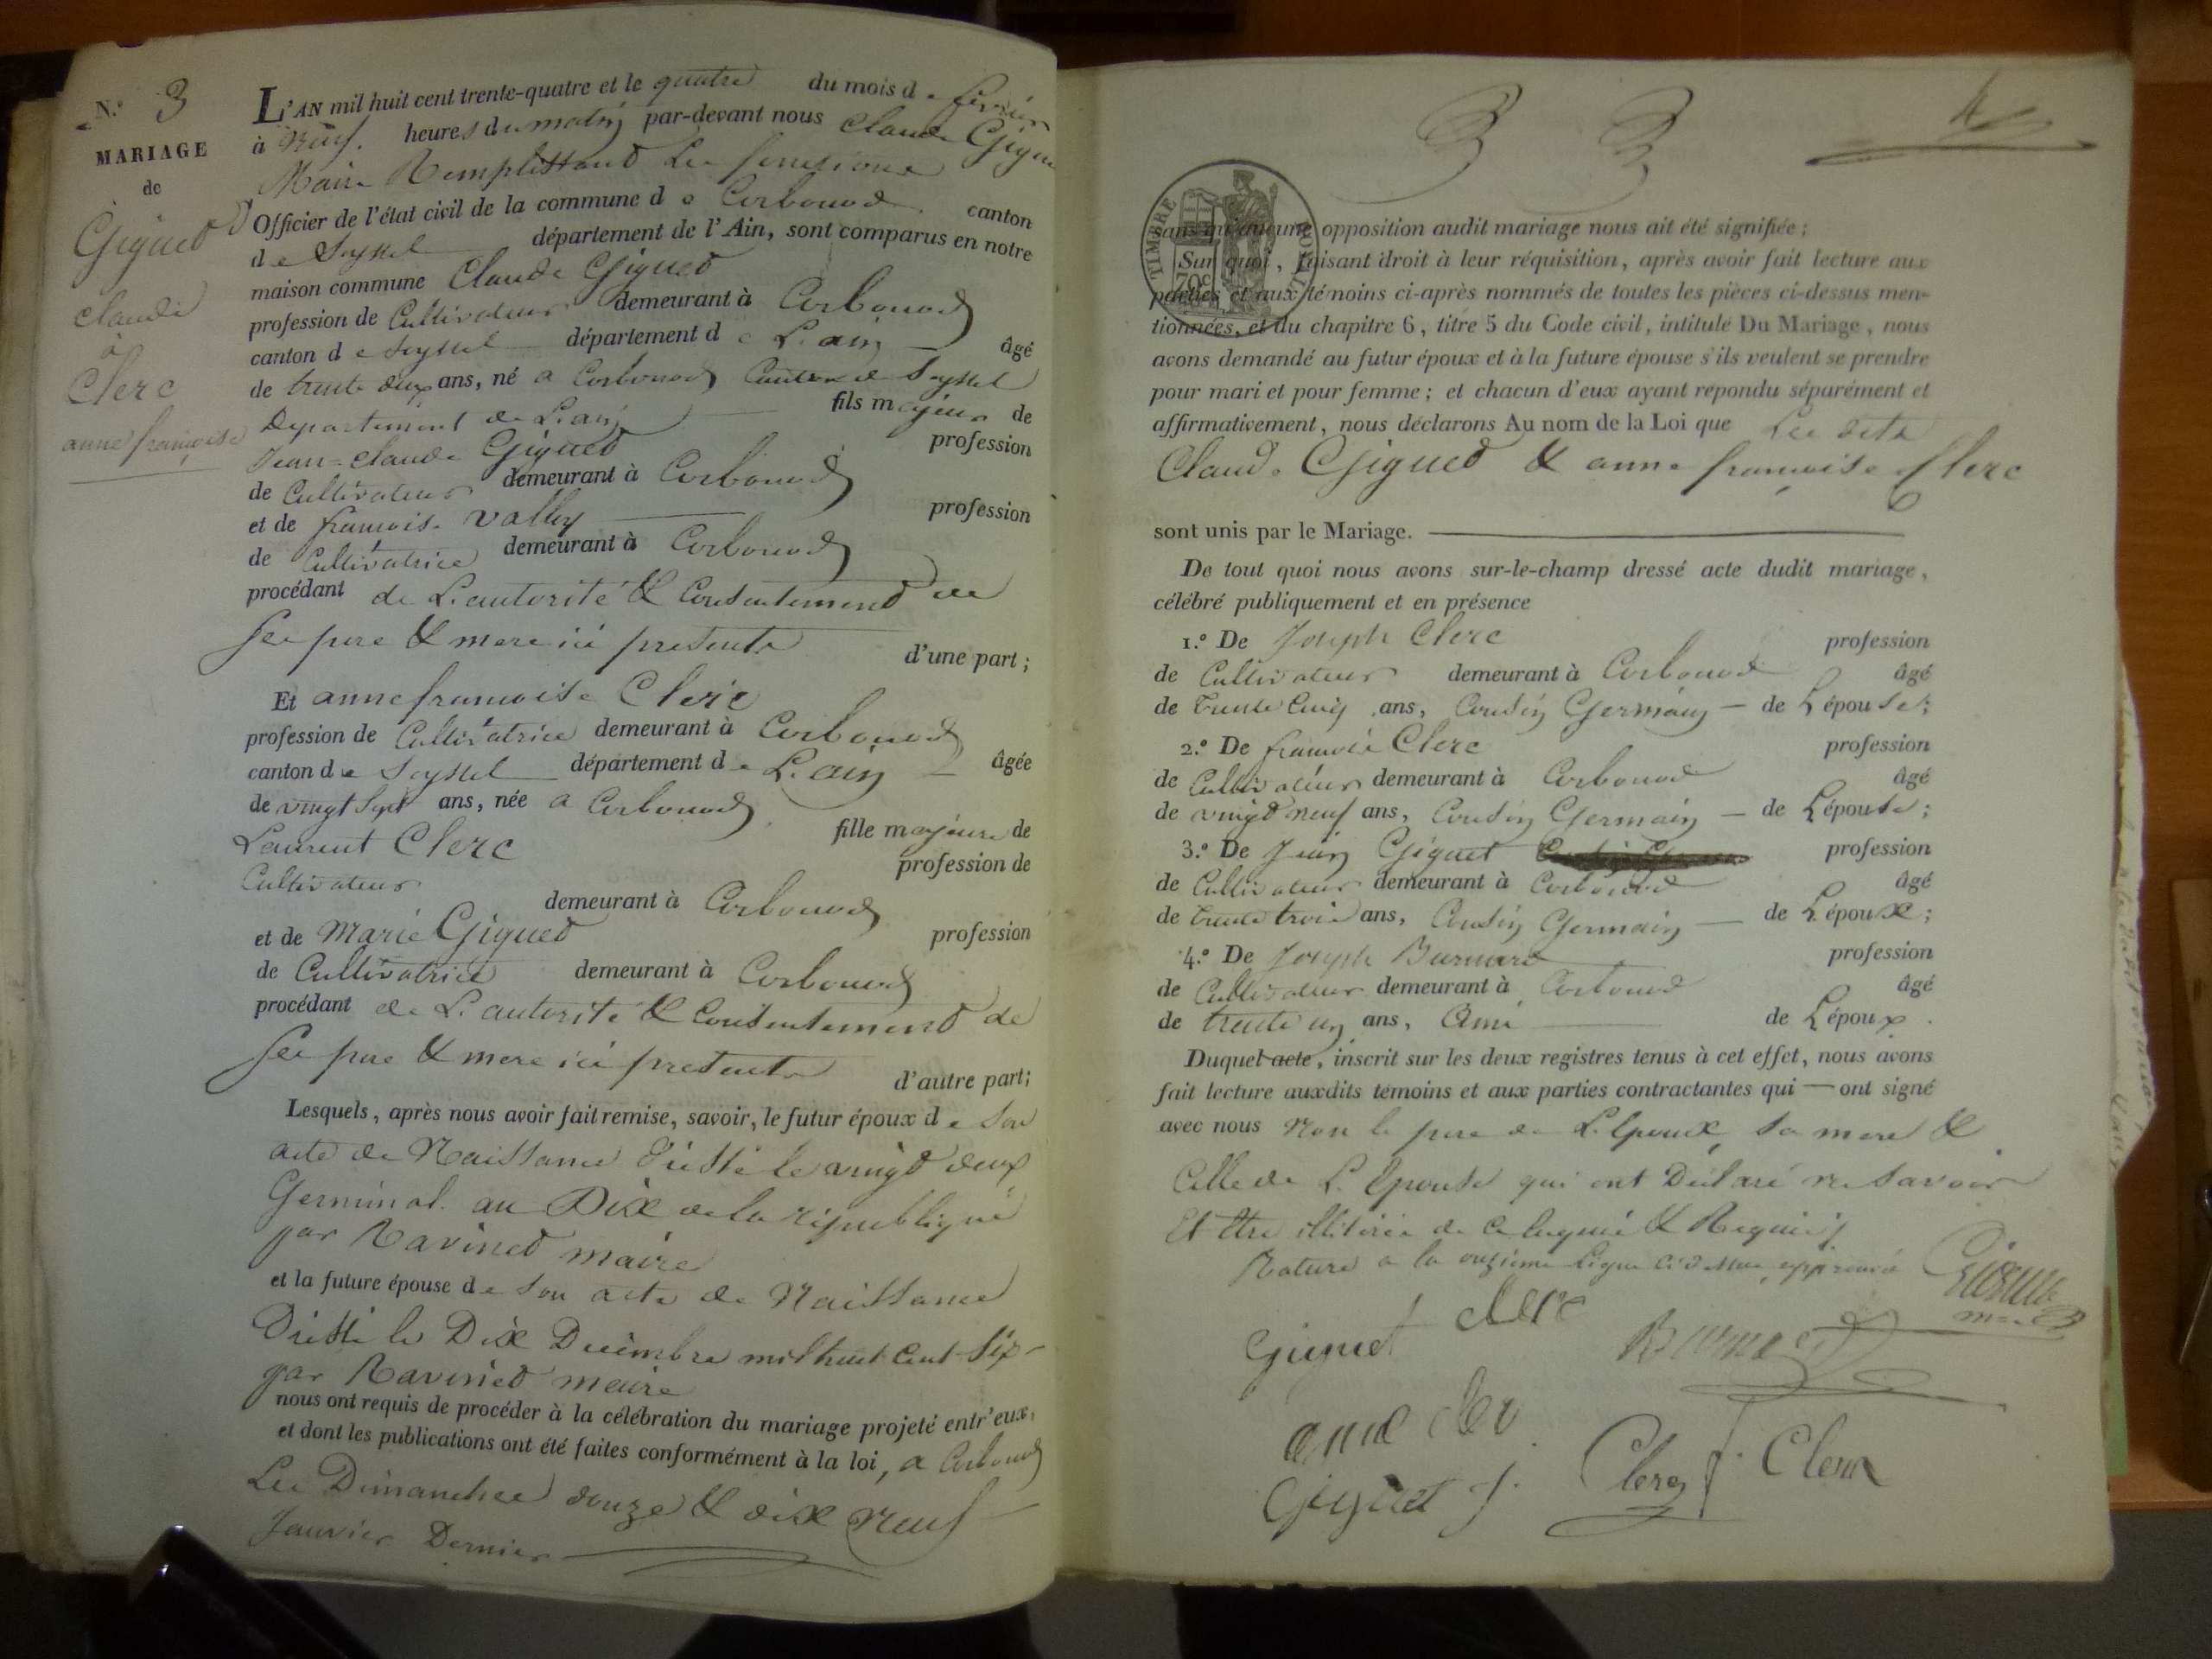 N.° 3
MARIAGE
de
Giguet
Claude
à
Clerc
anne françoise
L'AN mil huit cent trente-quatre et le quatre du mois de février
à neuf heures du matin par-devant nous Claude Gigue
Maire Remplissant Les fonctions
Officier de l'état civil de la commune de Corbonod canton
de Seyssel département de l'Ain, sont comparus en notre
maison commune Claude Giguet
profession de Cultivateur demeurant à Corbonod
canton de Seyssel département de L'ain âgé
de trente deux ans, né a Corbonod Canton de Seyssel
Departement de L'ain fils majeur de
Jean-Claude Giguet profession
de Cultivateur demeurant à Corbonod
et de françoise valluy profession
de Cultivatrice demeurant à Corbonod
procédant de L'autorité & Consentement de
ses pere & mere ici presents d'une part;
Et anne françoise Clerc
profession de Cultivatrice demeurant à Corbonod
canton de Seyssel département de L'ain âgée
de vingt sept ans, née a Corbonod
fille majeure de
Laurent Clerc profession de
Cultivateur demeurant à Corbonod
et de Marie Giguet profession
de Cultivatrice demeurant à Corbonod
procédant de L'autorité & Consentement de
ses pere & mere ici presents d'autre part;
Lesquels, après nous avoir fait remise, savoir, le futur époux de Son
acte de Naissance Dressé le vingt deux
Germinal an Dix de la république
par Ravinet maire
et la future épouse de Son acte de Naissance
Dressé le Dix Decembre mil huit Cent Six
par Ravinet maire
nous ont requis de procéder à la célébration du mariage projeté entr'eux,
et dont les publications ont été faites conformément à la loi, a Corbonod
Les Dimanches douze & dix neuf
Janvier Dernier
3 3 4
TIMBRE ROYAL
70c
sans qu'aucune opposition audit mariage nous ait été signifiée;
Sur quoi, faisant droit à leur réquisition, après avoir fait lecture aux
parties et aux témoins ci-après nommés de toutes les pièces ci-dessus men-
tionnées, et du chapitre 6, titre 5 du Code civil, intitulé Du Mariage, nous
avons demandé au futur époux et à la future épouse s'ils veulent se prendre
pour mari et pour femme; et chacun d'eux ayant répondu séparément et
affirmativement, nous déclarons Au nom de la Loi que Les dits
Claude Giguet & anne françoise Clerc
sont unis par le Mariage.
De tout quoi nous avons sur-le-champ dressé acte dudit mariage,
célébré publiquement et en présence
1.° De Joseph Clerc profession
de Cultivateur demeurant à Corbonod âgé
de trente Cinq ans, Cousin Germain de L'épouse;
2.° De françois Clerc profession
de Cultivateur demeurant à Corbonod âgé
de vingt neuf ans, Cousin Germain de L'épouse;
3.° De Jean Giguet profession
de Cultivateur demeurant à Corbonod âgé
de trente trois ans, Cousin Germain de L'époux;
4.° De Joseph Burnard profession
de Cultivateur demeurant à Corbonod âgé
de trente un ans, Ami de L'époux.
Duquel acte, inscrit sur les deux registres tenus à cet effet, nous avons
fait lecture auxdits témoins et aux parties contractantes qui ont signé
avec nous Non le pere de L'Epoux, Sa mere &
Celle de L'Epouse qui ont Déclaré ne Savoir
Et Etre illitérés de ce Enquis & Requis
Rature a la onzieme Ligne ci dessus approuvé
Giguet Clerc
anne Clerc
Giguet J. Clerc f. Clerc